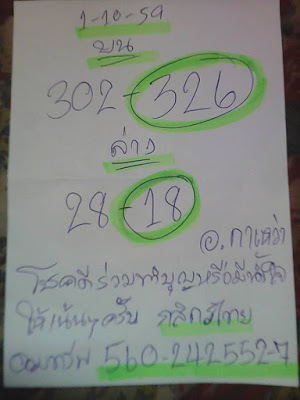 1-10-59
บน
302-326
ล่าง
28-18
อ.กาเหว่า
โชคดีร่วมทำบุญหรือมีน้ำใจ
ให้เน้นๆครับ กสิกรไทย
ออมทรัพ 560-2425527